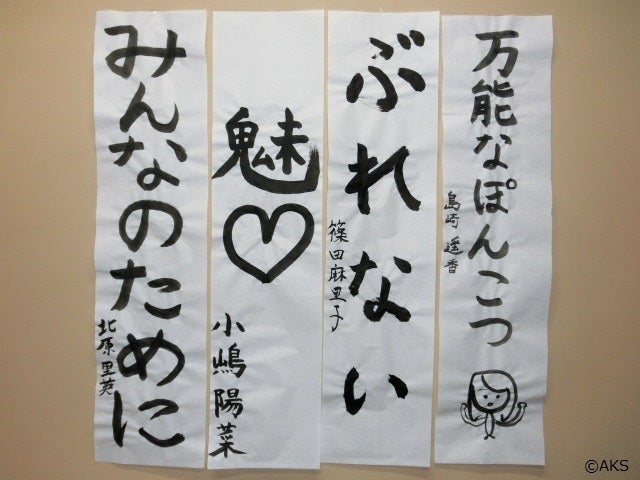 万能なぽんこつ
島崎遥香
ぶれない
篠田麻里子
魅♡
小嶋陽菜
みんなのために
北原里英
©AKS